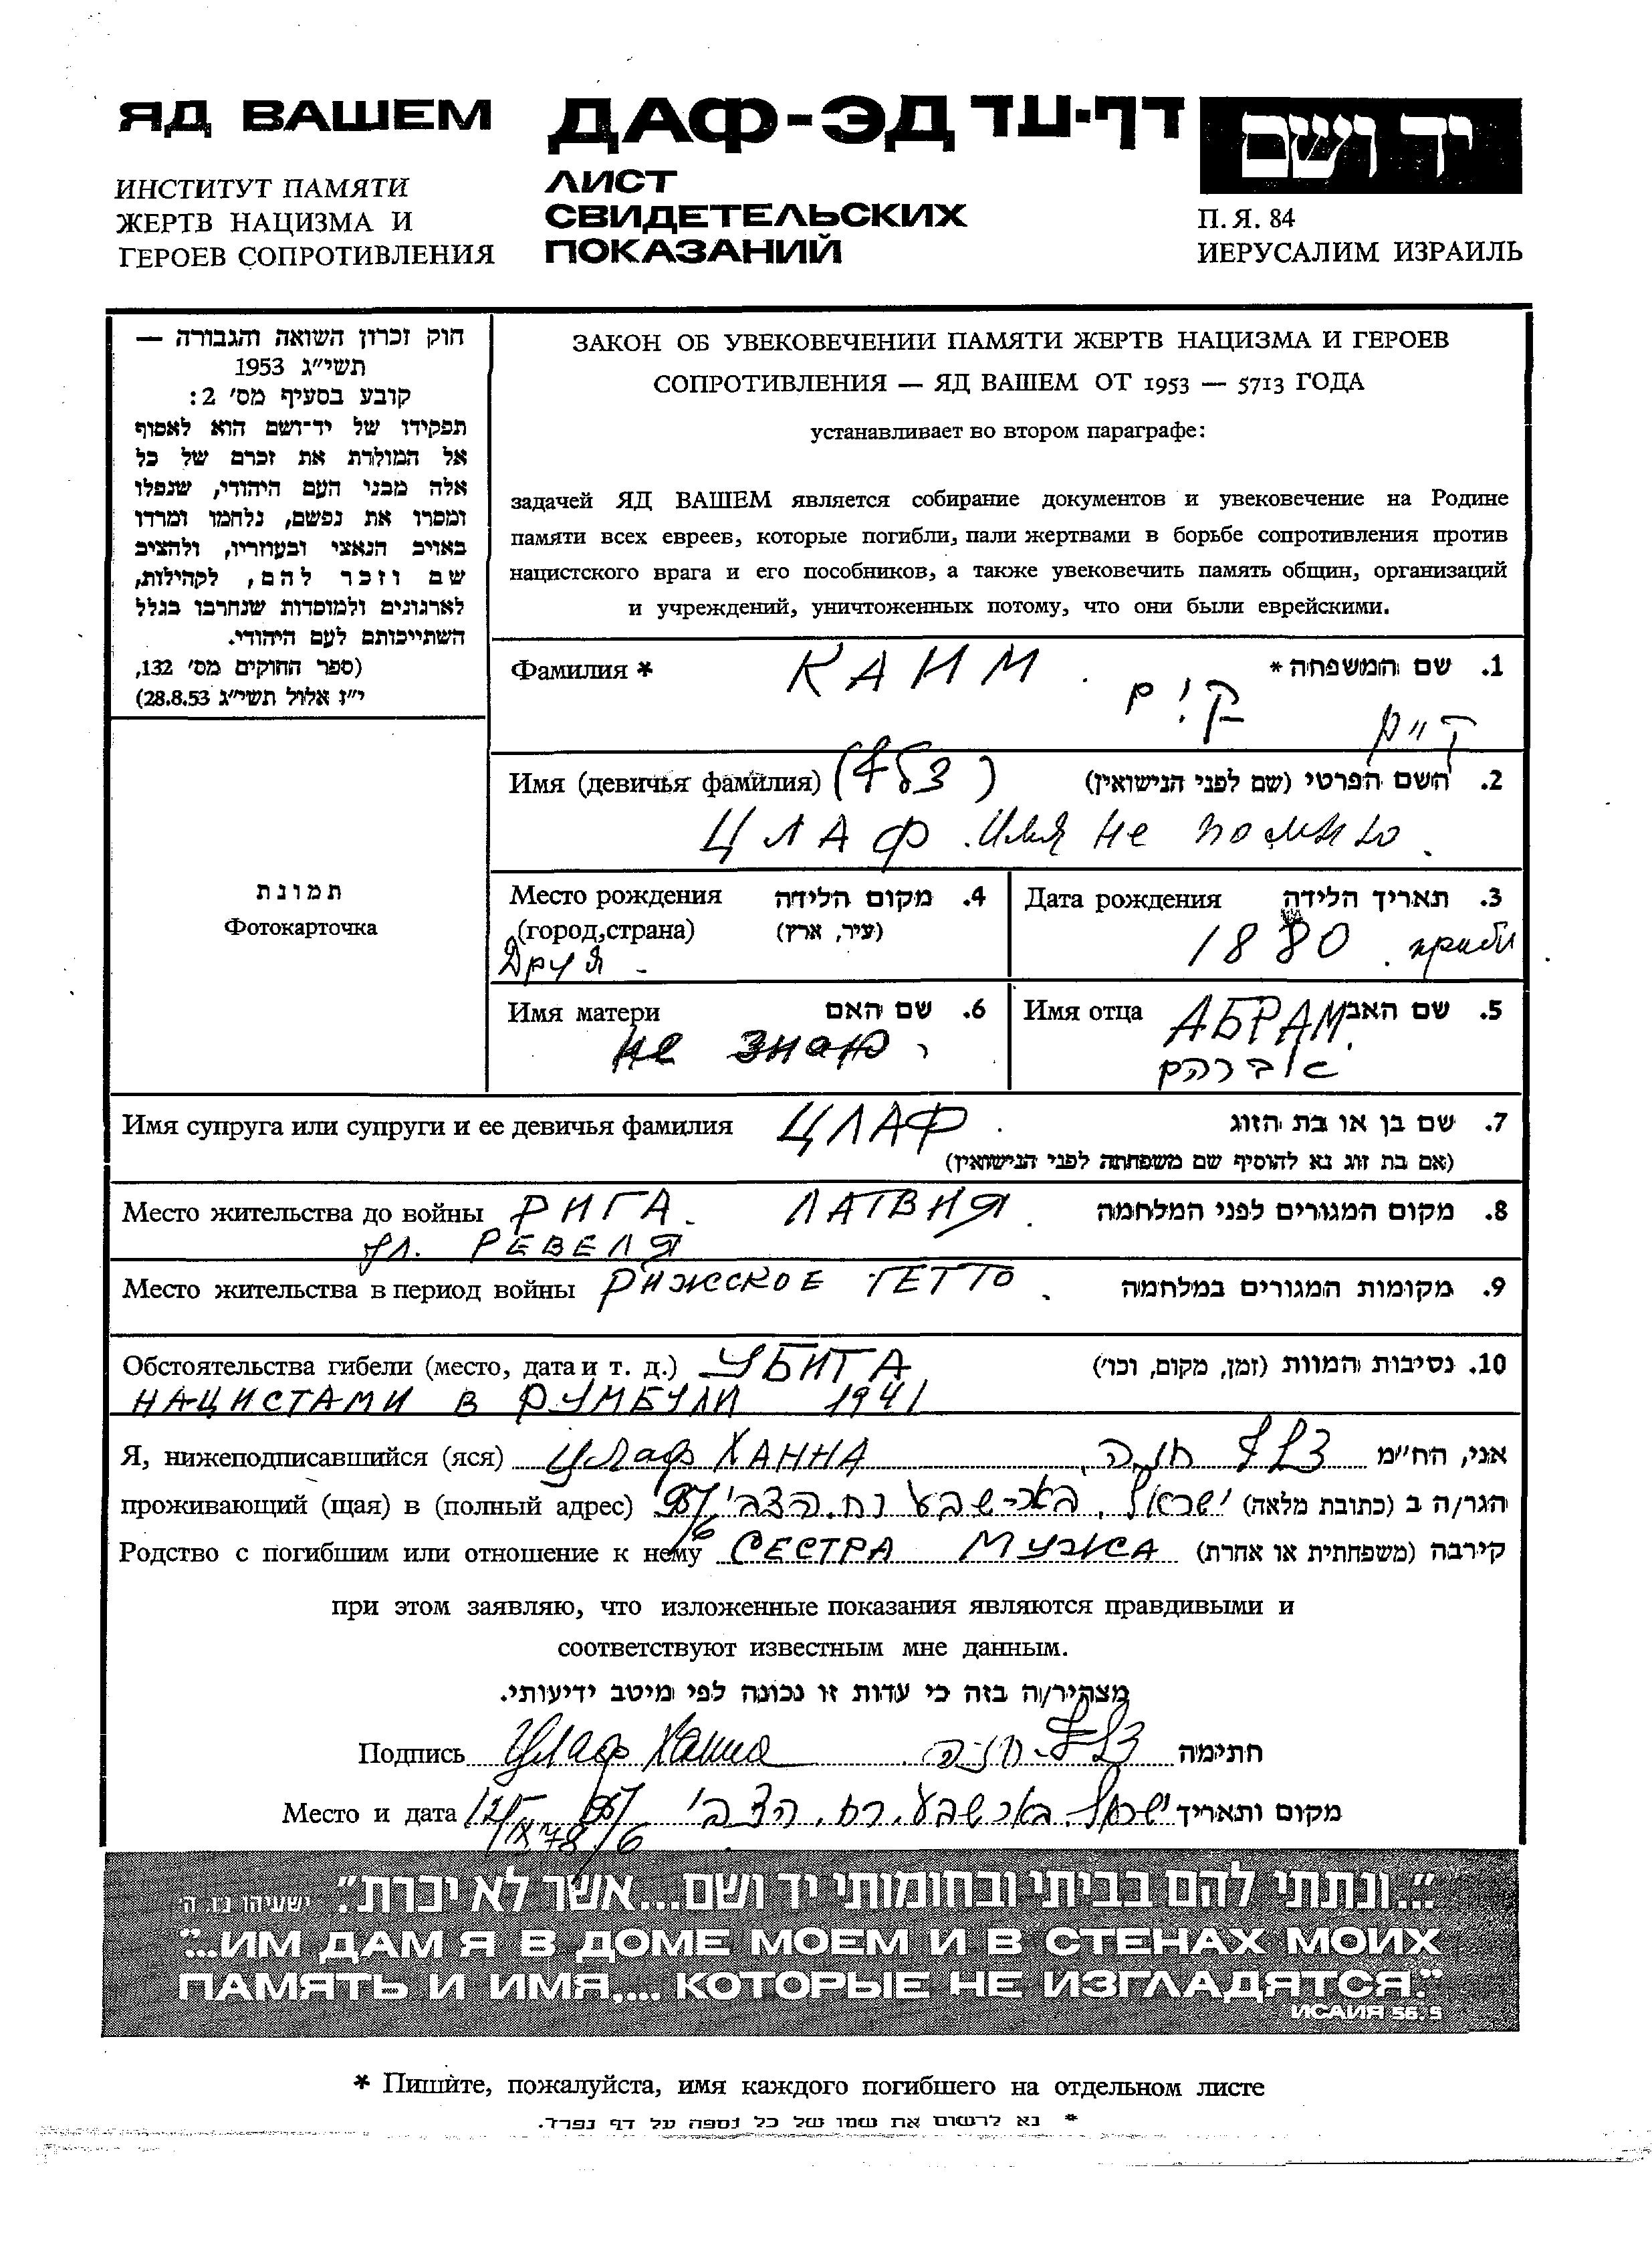 ЯД ВАШЕМ
ДАФ-ЭД דף-עד
יד ושם
ИНСТИТУТ ПАМЯТИ
ЖЕРТВ НАЦИЗМА И
ГЕРОЕВ СОПРОТИВЛЕНИЯ
ЛИСТ
СВИДЕТЕЛЬСКИХ
ПОКАЗАНИЙ
П. Я. 84
ИЕРУСАЛИМ ИЗРАИЛЬ
חוק זכרון השואה והגבורה —
תשי״ג 1953
קובע בסעיף מס׳ 2:
תפקידו של יד־ושם הוא לאסוף
אל המולדת את זכרם של כל
אלה מבני העם היהודי, שנפלו
ומסרו את נפשם, נלחמו ומרדו
באויב הנאצי ובעוזריו, ולהציב
שם וזכר להם, לקהילות,
לארגונים ולמוסדות שנחרבו בגלל
השתייכותם לעם היהודי.
(ספר החוקים מס׳ 132,
י״ז אלול תשי״ג 28.8.53)
ЗАКОН ОБ УВЕКОВЕЧЕНИИ ПАМЯТИ ЖЕРТВ НАЦИЗМА И ГЕРОЕВ
СОПРОТИВЛЕНИЯ — ЯД ВАШЕМ ОТ 1953 — 5713 ГОДА
устанавливает во втором параграфе:
задачей ЯД ВАШЕМ является собирание документов и увековечение на Родине
памяти всех евреев, которые погибли, пали жертвами в борьбе сопротивления против
нацистского врага и его пособников, а также увековечить память общин, организаций
и учреждений, уничтоженных потому, что они были еврейскими.
Фамилия * КАИМ. קים 1. שם המשפחה *
קיים
Имя (девичья фамилия) ( ) 2. השם הפרטי (שם לפני הנישואין)
ЦЛАФ. Имя не помню.
תמונת
Фотокарточка
Место рождения 4. מקום הלידה
(город,страна) (עיר, ארץ)
Друя -
Дата рождения 3. תאריך הלידה
1880. прибл
Имя матери 6. שם האם
не знаю.
Имя отца АБРАМ. 5. שם האב
אברהם
Имя супруга или супруги и ее девичья фамилия ЦЛАФ. 7. שם בן או בת הזוג
(אם בת זוג נא להוסיף שם משפחתה לפני הנישואין)
Место жительства до войны РИГА. ЛАТВИЯ. 8. מקום המגורים לפני המלחמה
ул. РЕВЕЛЯ
Место жительства в период войны РИЖСКОЕ ГЕТТО. 9. מקומות המגורים במלחמה
Обстоятельства гибели (место, дата и т. д.) УБИТА 10. נסיבות המוות (זמן, מקום, וכו׳)
НАЦИСТАМИ В РУМБУЛИ 1941
Я, нижеподписавшийся (яся) Цлаф ХАННА חנה אני, הח״מ
проживающий (щая) в (полный адрес) ישראל, באר-שבע הצבי הגר/ה ב (כתובת מלאה)
Родство с погибшим или отношение к нему СЕСТРА МУЖА קירבה (משפחתית או אחרת)
при этом заявляю, что изложенные показания являются правдивыми и
соответствуют известным мне данным.
מצהיר/ה בזה כי עדות זו נכונה לפי מיטב ידיעותי.
Подпись Цлаф Ханна חנה חתימה
Место и дата ישראל. באר שבע. הצבי מקום ותאריך
״...ונתתי להם בביתי ובחומותי יד ושם...אשר לא יכרת״. ישעיהו נו. ה
"...ИМ ДАМ Я В ДОМЕ МОЕМ И В СТЕНАХ МОИХ
ПАМЯТЬ И ИМЯ.... КОТОРЫЕ НЕ ИЗГЛАДЯТСЯ."
ИСАИЯ 56. 5
* Пишите, пожалуйста, имя каждого погибшего на отдельном листе
* נא לרשום את שמו של כל נספה על דף נפרד.